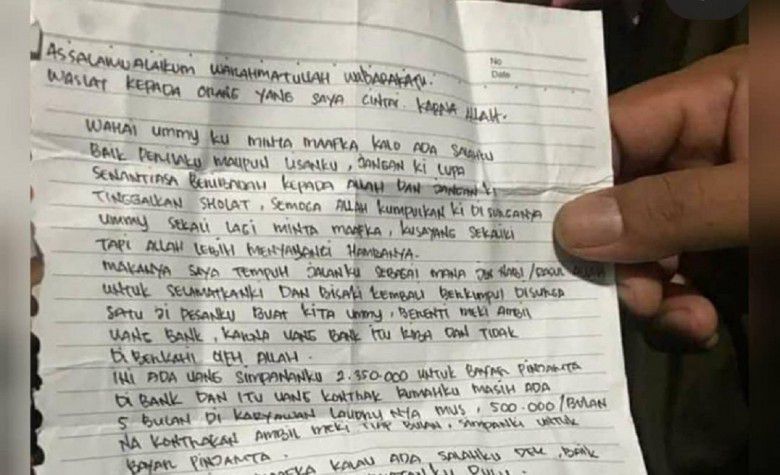 No
Date
ASSALAMUALAIKUM WARAHMATULLAH WABARAKATU.
WASIAT KEPADA ORANG YANG SAYA CINTAI KARNA ALLAH.
WAHAI UMMY KU MINTA MAAFKA KALO ADA SALAHKU
BAIK PERILAKU MAUPUN LISANKU, JANGAN KI LUPA
SENANTIASA BERIBADAH KEPADA ALLAH DAN JANGAN KI
TINGGALKAN SHOLAT, SEMOGA ALLAH KUMPULKAN KI DI SURGANYA
UMMY SEKALI LAGI MINTA MAAFKA, KUSAYANG SEKALIKI
TAPI ALLAH LEBIH MENYAYANGI HAMBANYA.
MAKANYA SAYA TEMPUH JALANKU SEBAGAI MANA JLN NABI/RASUL ALLAH
UNTUK SELAMATKANKI DAN BISAKI KEMBALI BERKUMPUL DISURGA
SATU DI PESANKU BUAT KITA UMMY, BERENTI MEKI AMBIL
UANG BANK, KARNA UANG BANK ITU RIBA DAN TIDAK
DI BERKAHI OLEH ALLAH.
INI ADA UANG SIMPANANKU 2.350.000 UNTUK BAYAR PINJAMTA
DI BANK DAN ITU UANG KONTRAK RUMAHKU MASIH ADA
5 BULAN DI KARYAWAN LAUNDRY NYA MUS, 500.000/BULAN
NA KONTRAKAN AMBIL MEKI TIAP BULAN, SIMPANKI UNTUK
BAYAR PINJAMTA.
MAAFKA KALAU ADA SALAHKU DEK, BAIK